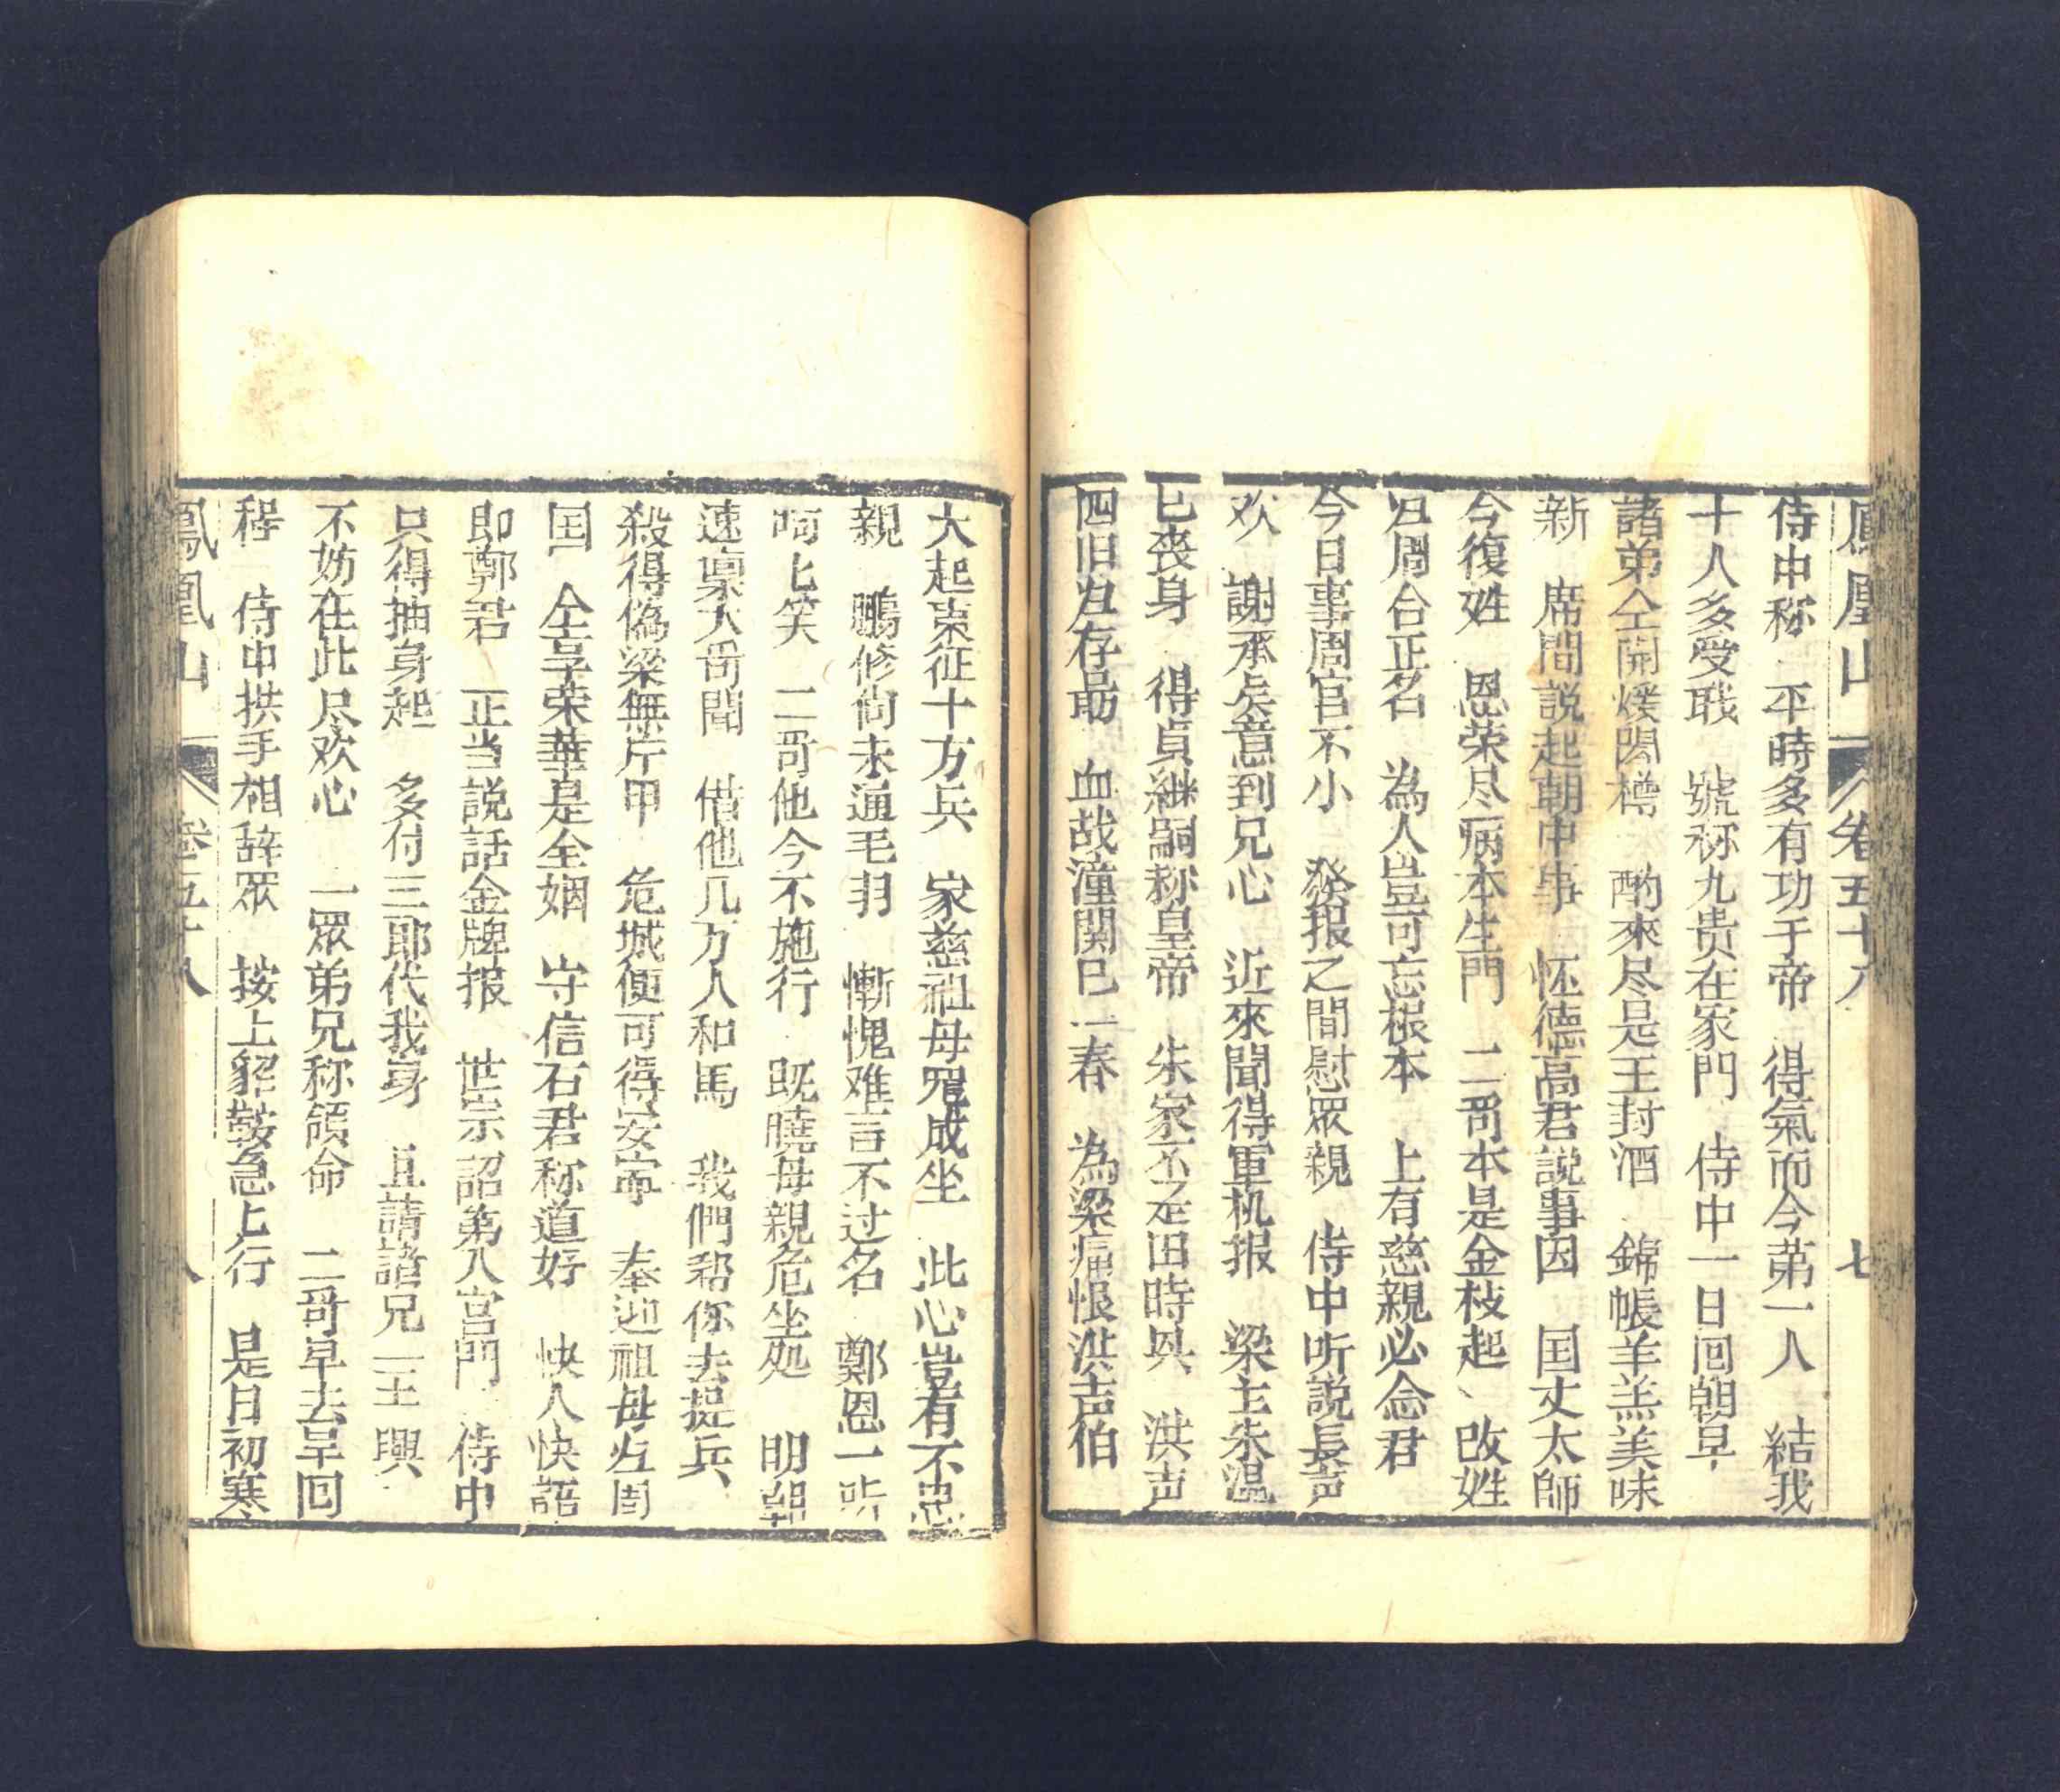 鳳凰山 卷五十八 七
侍中称 平時多有功于帝 得氣而今第一人 結我
十人多受戢 號称九贵在家門 侍中一日囘朝早
諸弟仝開煖閣樽 酌來尽是王封酒 錦帳羊羔美味
新 席間説起朝中事 怀德高君説事因 国丈太師
今復姓 恩荣尽病本生門 二哥本是金枝起 改姓
为周合正名 為人豈可忘根本 上有慈親必念君
今日事周官不小 發报之間慰眾親 侍中听説長声
欢 謝承矣意到兄心 近來聞得軍机报 梁主朱温
已丧身 得貞継嗣称皇帝 朱家不足田時兴 洪声
四旧为存勗 血战潼関已一春 為梁痛恨洪声伯
大起東征十万兵 家慈祖母冤成坐 此心豈有不忠
親 鵬修尙未通毛羽 慚愧难言不过名 鄭恩一听
呵上笑 二哥他今不施行 既曉母親危坐処 明朝
速禀大哥聞 借他几万人和馬 我們帮你去提兵
殺得偽梁無片甲 危城便可得安寧 奉迎祖母为周
国 仝享荣華是全姻 守信石君称道好 快人快語
即鄭君 正当説話金牌报 世宗詔第入宮門 侍中
只得抽身起 多付三郎代我身 且請諸兄一主興
不妨在此尽欢心 一眾弟兄称領命 二哥早去早回
程 侍中拱手相辞眾 按上貂鞍急上行 是日初寒
鳳凰山 卷五十八 八